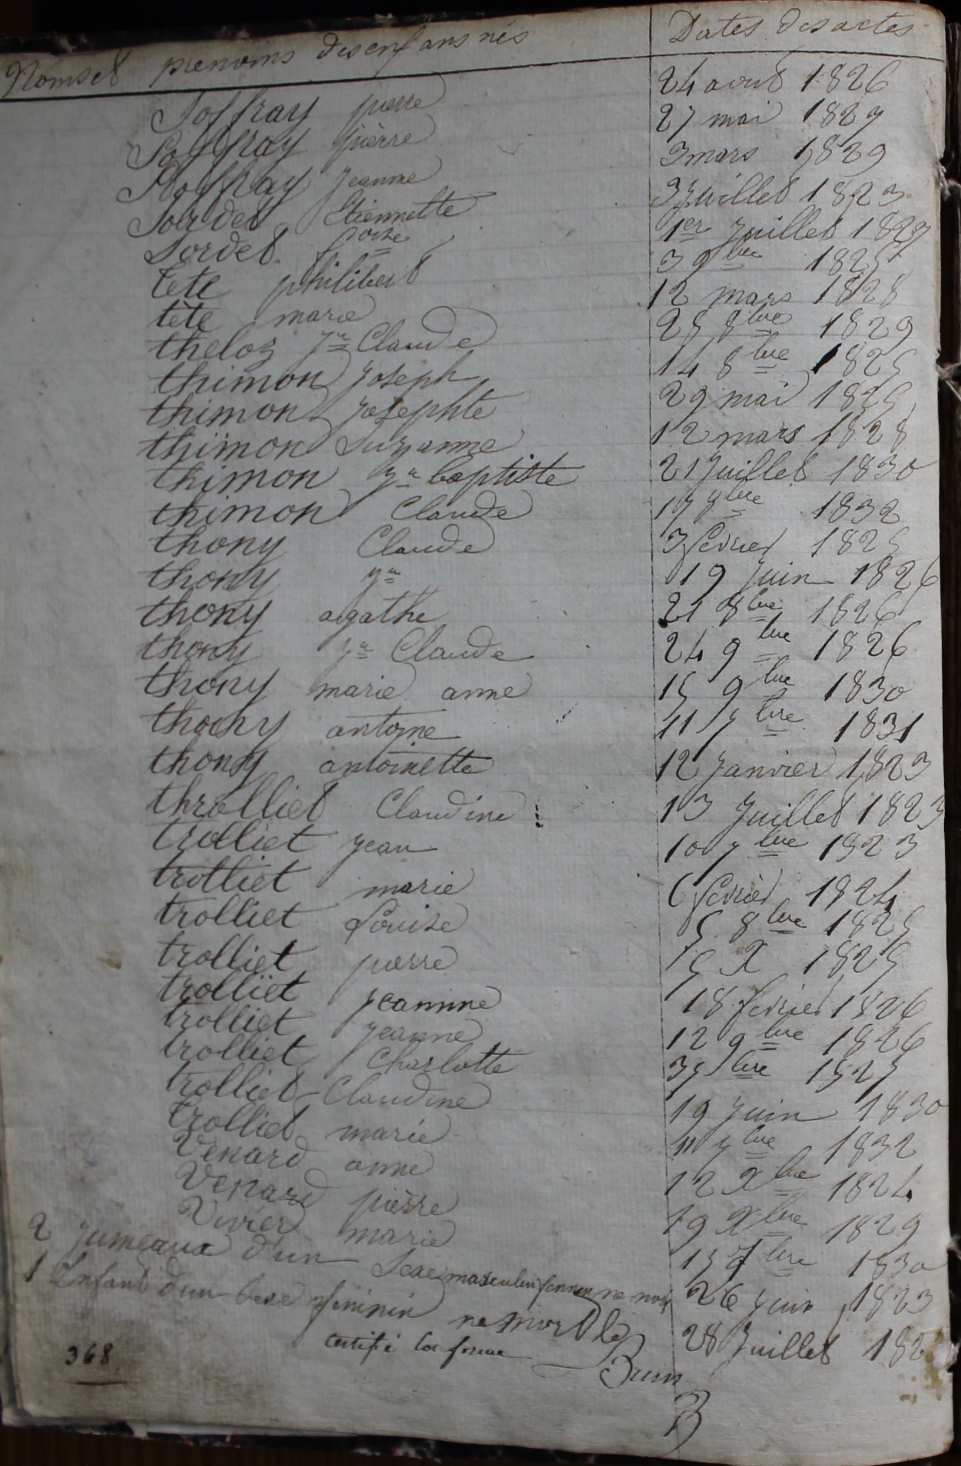 Noms et prenoms des enfans nés Dates des actes
Joffray pierre 24 avril 1826
Joffray pierre 27 mai 1829
Joffray Jeanne 3 mars 1829
Sordet Etiennette 3 Juillet 1823
Sordet 1er Juillet 1829
tete philibert 3 9bre 1825
tete marie 12 mars 1828
theloz jn Claude 25 8bre 1829
thimon Joseph 14 8bre 1825
thimon Josephte 29 mai 1825
thimon Suzanne 12 mars 1828
thimon jn baptiste 21 Juillet 1830
thimon Claude 1832
thony Claude 3 fevrier 1825
thony jn 19 Juin 1826
thony agathe 21 8bre 1826
thony jn Claude 24 9bre 1826
thony marie anne 15 9bre 1830
thony antoine 11 7bre 1831
thony antoinette 12 Janvier 1823
throlliet Claudine 13 Juillet 1823
trolliet jean 10 7bre 1823
trolliet marie 6 fevrier 1824
trolliet Louise 5 8bre 1825
trolliet pierre 15 X 1825
trolliet jeannine 18 fevrier 1826
trolliet jeanne 12 9bre 1826
trolliet Charlotte
trolliet Claudine 19 Juin 1830
trolliet marie 11 7bre 1832
Venard anne 12 Xbre 1824
Venard pierre 19 Xbre 1829
Vivier marie 15 7bre 1830
2 Jumeaux d'un Sexe masculin 26 Juin 1823
1 Enfant d'un Sexe feminin né mort 28 Juillet
certifié
368